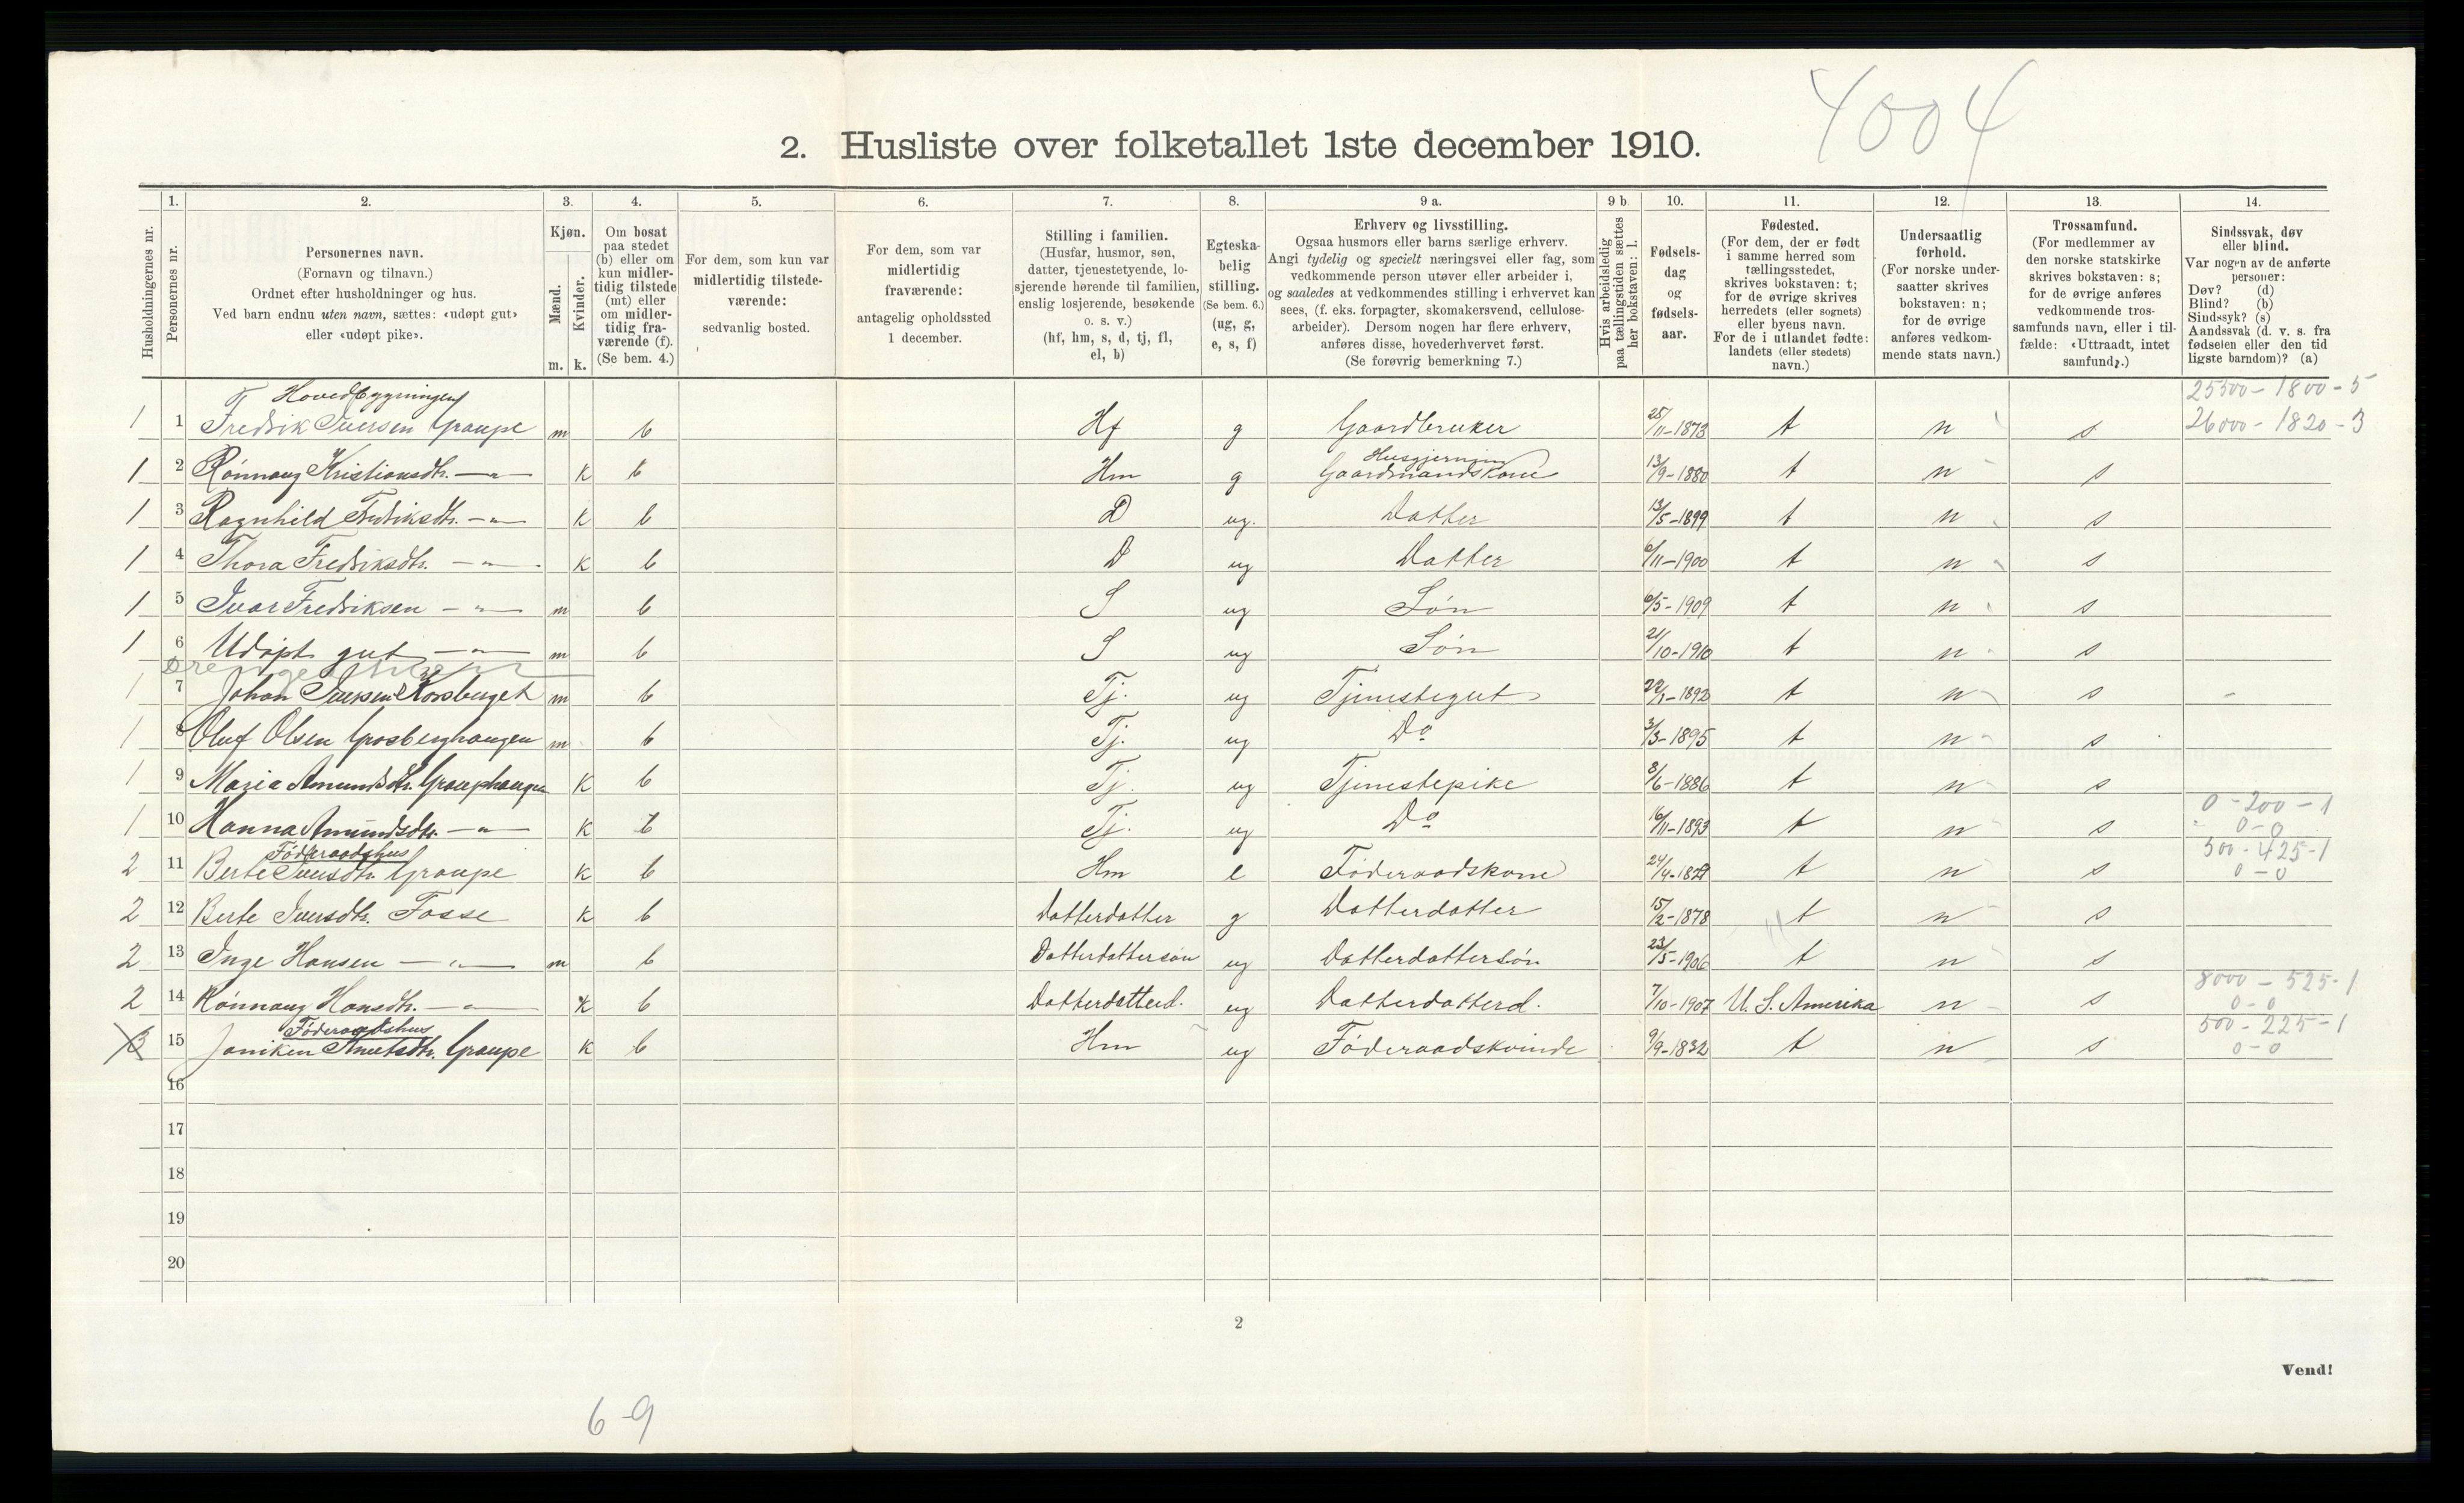 4004
2. Husliste over folketallet 1ste december 1910.
Husholdningernes nr.
1. Personernes nr.
2. Personernes navn. (Fornavn og tilnavn.) Ordnet efter husholdninger og hus. Ved barn endnu uten navn, sættes: «udøpt gut» eller «udøpt pike».
3. Kjøn. Mænd. m. Kvinder. k.
4. Om bosat paa stedet (b) eller om kun midlertidig tilstede (mt) eller om midlertidig fraværende (f). (Se bem. 4.)
5. For dem, som kun var midlertidig tilstedeværende: sedvanlig bosted.
6. For dem, som var midlertidig fraværende: antagelig opholdssted 1 december.
7. Stilling i familien. (Husfar, husmor, søn, datter, tjenestetyende, losjerende hørende til familien, enslig losjerende, besøkende o. s. v.) (hf, hm, s, d, tj, fl, el, b)
8. Egteskabelig stilling. (Se bem. 6.) (ug, g, e, s, f)
9 a. Erhverv og livsstilling. Ogsaa husmors eller barns særlige erhverv. Angi tydelig og specielt næringsvei eller fag, som vedkommende person utøver eller arbeider i, og saaledes at vedkommendes stilling i erhvervet kan sees, (f. eks. forpagter, skomakersvend, cellulosearbeider). Dersom nogen har flere erhverv, anføres disse, hovederhvervet først. (Se forøvrig bemerkning 7.)
9 b Hvis arbeidsledig paa tællingstiden sættes her bokstaven: l.
10. Fødselsdag og fødselsaar.
11. Fødested. (For dem, der er født i samme herred som tællingsstedet, skrives bokstaven: t; for de øvrige skrives herredets (eller sognets) eller byens navn. For de i utlandet fødte: landets (eller stedets) navn.)
12. Undersaatlig forhold. (For norske undersaatter skrives bokstaven: n; for de øvrige anføres vedkommende stats navn.)
13. Trossamfund. (For medlemmer av den norske statskirke skrives bokstaven: s; for de øvrige anføres vedkommende trossamfunds navn, eller i tilfælde: «Uttraadt, intet samfund».)
14. Sindssvak, døv eller blind. Var nogen av de anførte personer: Døv? (d) Blind? (b) Sindssyk? (s) Aandssvak (d. v. s. fra fødselen eller den tid ligste barndom)? (a)
Hovedbygningen 25500 - 1800 - 5
1 1 Fredrik Iversen Graupe m b Hf g Gaardbruker 25/11-1873 t n s 26000 - 1820 - 3
Husgjerning
1 2 Rønnaug Kristiansdtr. -"- k b Hm g Gaardmandskone 13/9-1880 t n s
1 3 Ragnhild Fredriksdtr. -"- k b D ug. Datter 13/5-1899 t n s
1 4 Thora Fredriksdtr. -"- k b D ug Datter 6/11-1900 t n s
1 5 Ivar Fredriksen -"- m b S ug Søn 6/5-1909 t n s
1 6 Udøpt gut -"- m b S ug Søn 21/10-1910 t n s
1 7 Johan Iversen m b Tj. ug Tjenestegut 22/1-1892 t n s
1 8 Oluf Olsen Grosberghaugen m b Tj. ug Do 3/3-1895 t n s
1 9 Maria Amundsdtr. Grauphaugen k b Tj. ug Tjenestepike 8/6-1886 t n s
0 - 200 - 1
1 10 Hanna Amundsdtr. -"- k b Tj. ug Do 16/11-1893 t n s 0 - 0
Føderaadshus 500 - 425 - 1
2 11 Berte Iversdtr. Graupe k b Hm e Føderaadskone t n s 0 - 0
2 12 Berte Iversdtr. Fosse k b Datterdatter g Datterdatter 15/2-1878 t n s
2 13 Inge Hansen -"- m b Datterdattersøn ug Datterdattersøn 23/5-1906 t n s
8000 - 525 - 1
2 14 Rønnaug Hansdtr. -"- k b Datterdatterd. ug Datterdatterd. 7/10-1907 U. S. Amerika n s 0 - 0
Føderaadshus 500 - 225 - 1
3 15 Janiken Knutsdtr. Graupe k b Hm ug Føderaadskvinde 9/9-1832 t n s 0 - 0
16
17
18
19
20
2
Vend!
6-9